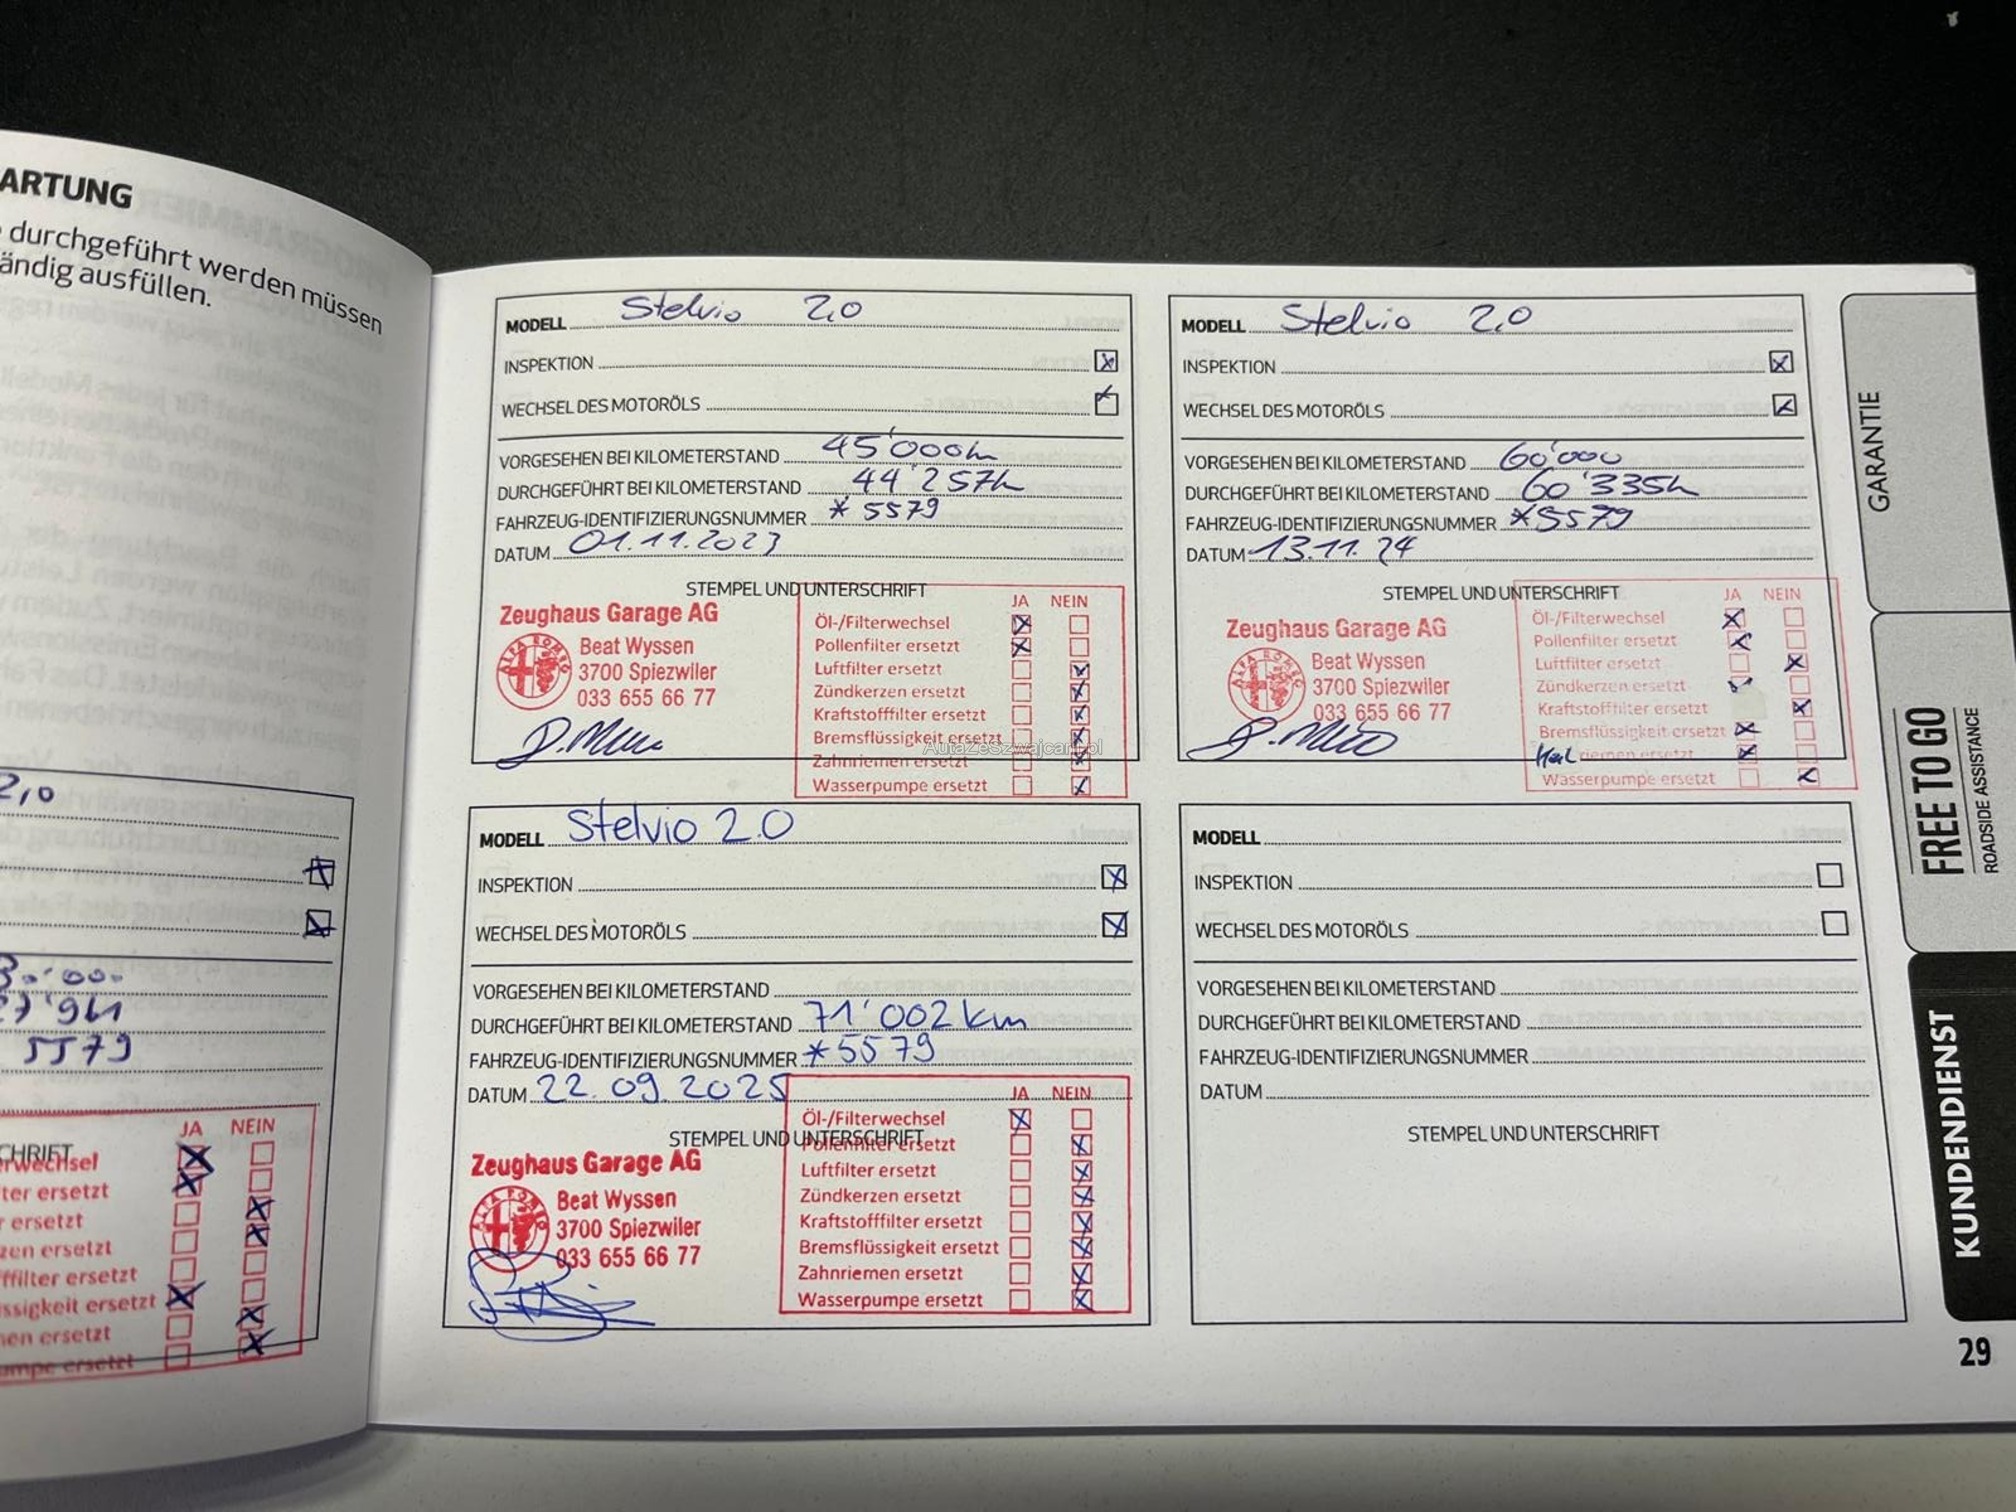 ARTUNG
durchgeführt werden müssen
ändig ausfüllen.
2,0
5579
CHRIFT
JA NEIN
rwechsel
ter ersetzt
r ersetzt
zen ersetzt
ffilter ersetzt
ssigkeit ersetzt
men ersetzt
umpe ersetzt
MODELL Stelvio 2,0
INSPEKTION
WECHSEL DES MOTORÖLS
VORGESEHEN BEI KILOMETERSTAND 45'000
DURCHGEFÜHRT BEI KILOMETERSTAND 44'257
FAHRZEUG-IDENTIFIZIERUNGSNUMMER *5579
DATUM 01.11.2023
STEMPEL UND UNTERSCHRIFT
Zeughaus Garage AG
ALFA ROMEO
Beat Wyssen
3700 Spiezwiler
033 655 66 77
JA NEIN
Öl-/Filterwechsel
Pollenfilter ersetzt
Luftfilter ersetzt
Zündkerzen ersetzt
Kraftstofffilter ersetzt
Bremsflüssigkeit ersetzt
Zahnriemen ersetzt
Wasserpumpe ersetzt
AutaZeSzwajcarii.pl
MODELL Stelvio 2,0
INSPEKTION
WECHSEL DES MOTORÖLS
VORGESEHEN BEI KILOMETERSTAND 60'000
DURCHGEFÜHRT BEI KILOMETERSTAND 60'335
FAHRZEUG-IDENTIFIZIERUNGSNUMMER *5579
DATUM 13.11.24
STEMPEL UND UNTERSCHRIFT
Zeughaus Garage AG
ALFA ROMEO
Beat Wyssen
3700 Spiezwiler
033 655 66 77
JA NEIN
Öl-/Filterwechsel
Pollenfilter ersetzt
Luftfilter ersetzt
Zündkerzen ersetzt
Kraftstofffilter ersetzt
Bremsflüssigkeit ersetzt
riemen ersetzt
Wasserpumpe ersetzt
MODELL Stelvio 2.0
INSPEKTION
WECHSEL DES MOTORÖLS
VORGESEHEN BEI KILOMETERSTAND
DURCHGEFÜHRT BEI KILOMETERSTAND 71'002 km
FAHRZEUG-IDENTIFIZIERUNGSNUMMER *5579
DATUM 22.09.2025
STEMPEL UND UNTERSCHRIFT
Zeughaus Garage AG
ALFA ROMEO
Beat Wyssen
3700 Spiezwiler
033 655 66 77
JA NEIN
Öl-/Filterwechsel
Pollenfilter ersetzt
Luftfilter ersetzt
Zündkerzen ersetzt
Kraftstofffilter ersetzt
Bremsflüssigkeit ersetzt
Zahnriemen ersetzt
Wasserpumpe ersetzt
MODELL
INSPEKTION
WECHSEL DES MOTORÖLS
VORGESEHEN BEI KILOMETERSTAND
DURCHGEFÜHRT BEI KILOMETERSTAND
FAHRZEUG-IDENTIFIZIERUNGSNUMMER
DATUM
STEMPEL UND UNTERSCHRIFT
GARANTIE
FREE TO GO
ROADSIDE ASSISTANCE
KUNDENDIENST
29